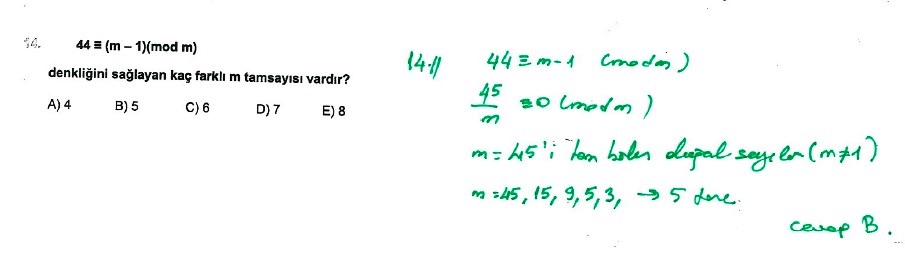 14.
44 ≡ (m – 1)(mod m)
denkliğini sağlayan kaç farklı m tamsayısı vardır?
A) 4 B) 5 C) 6 D) 7 E) 8
14.// 44 ≡ m-1 (mod m)
45/m ≡ 0 (mod m)
m = 45'i tam bölen doğal sayılar (m≠1)
m = 45, 15, 9, 5, 3, → 5 tane.
cevap B.